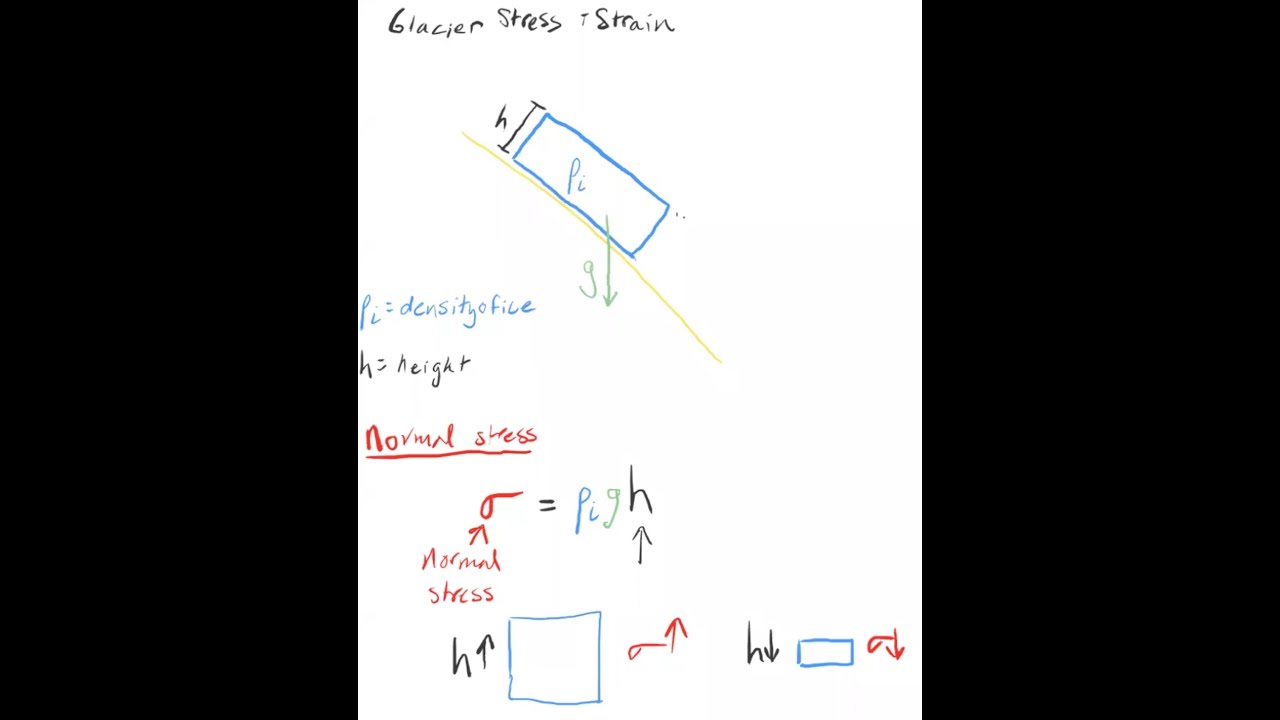 Glacier Stress + Strain
h
ρi
g
ρi = density of ice
h = height
Normal stress
σ = ρi g h
Normal
stress
h↑ σ↑ h↓ σ↓